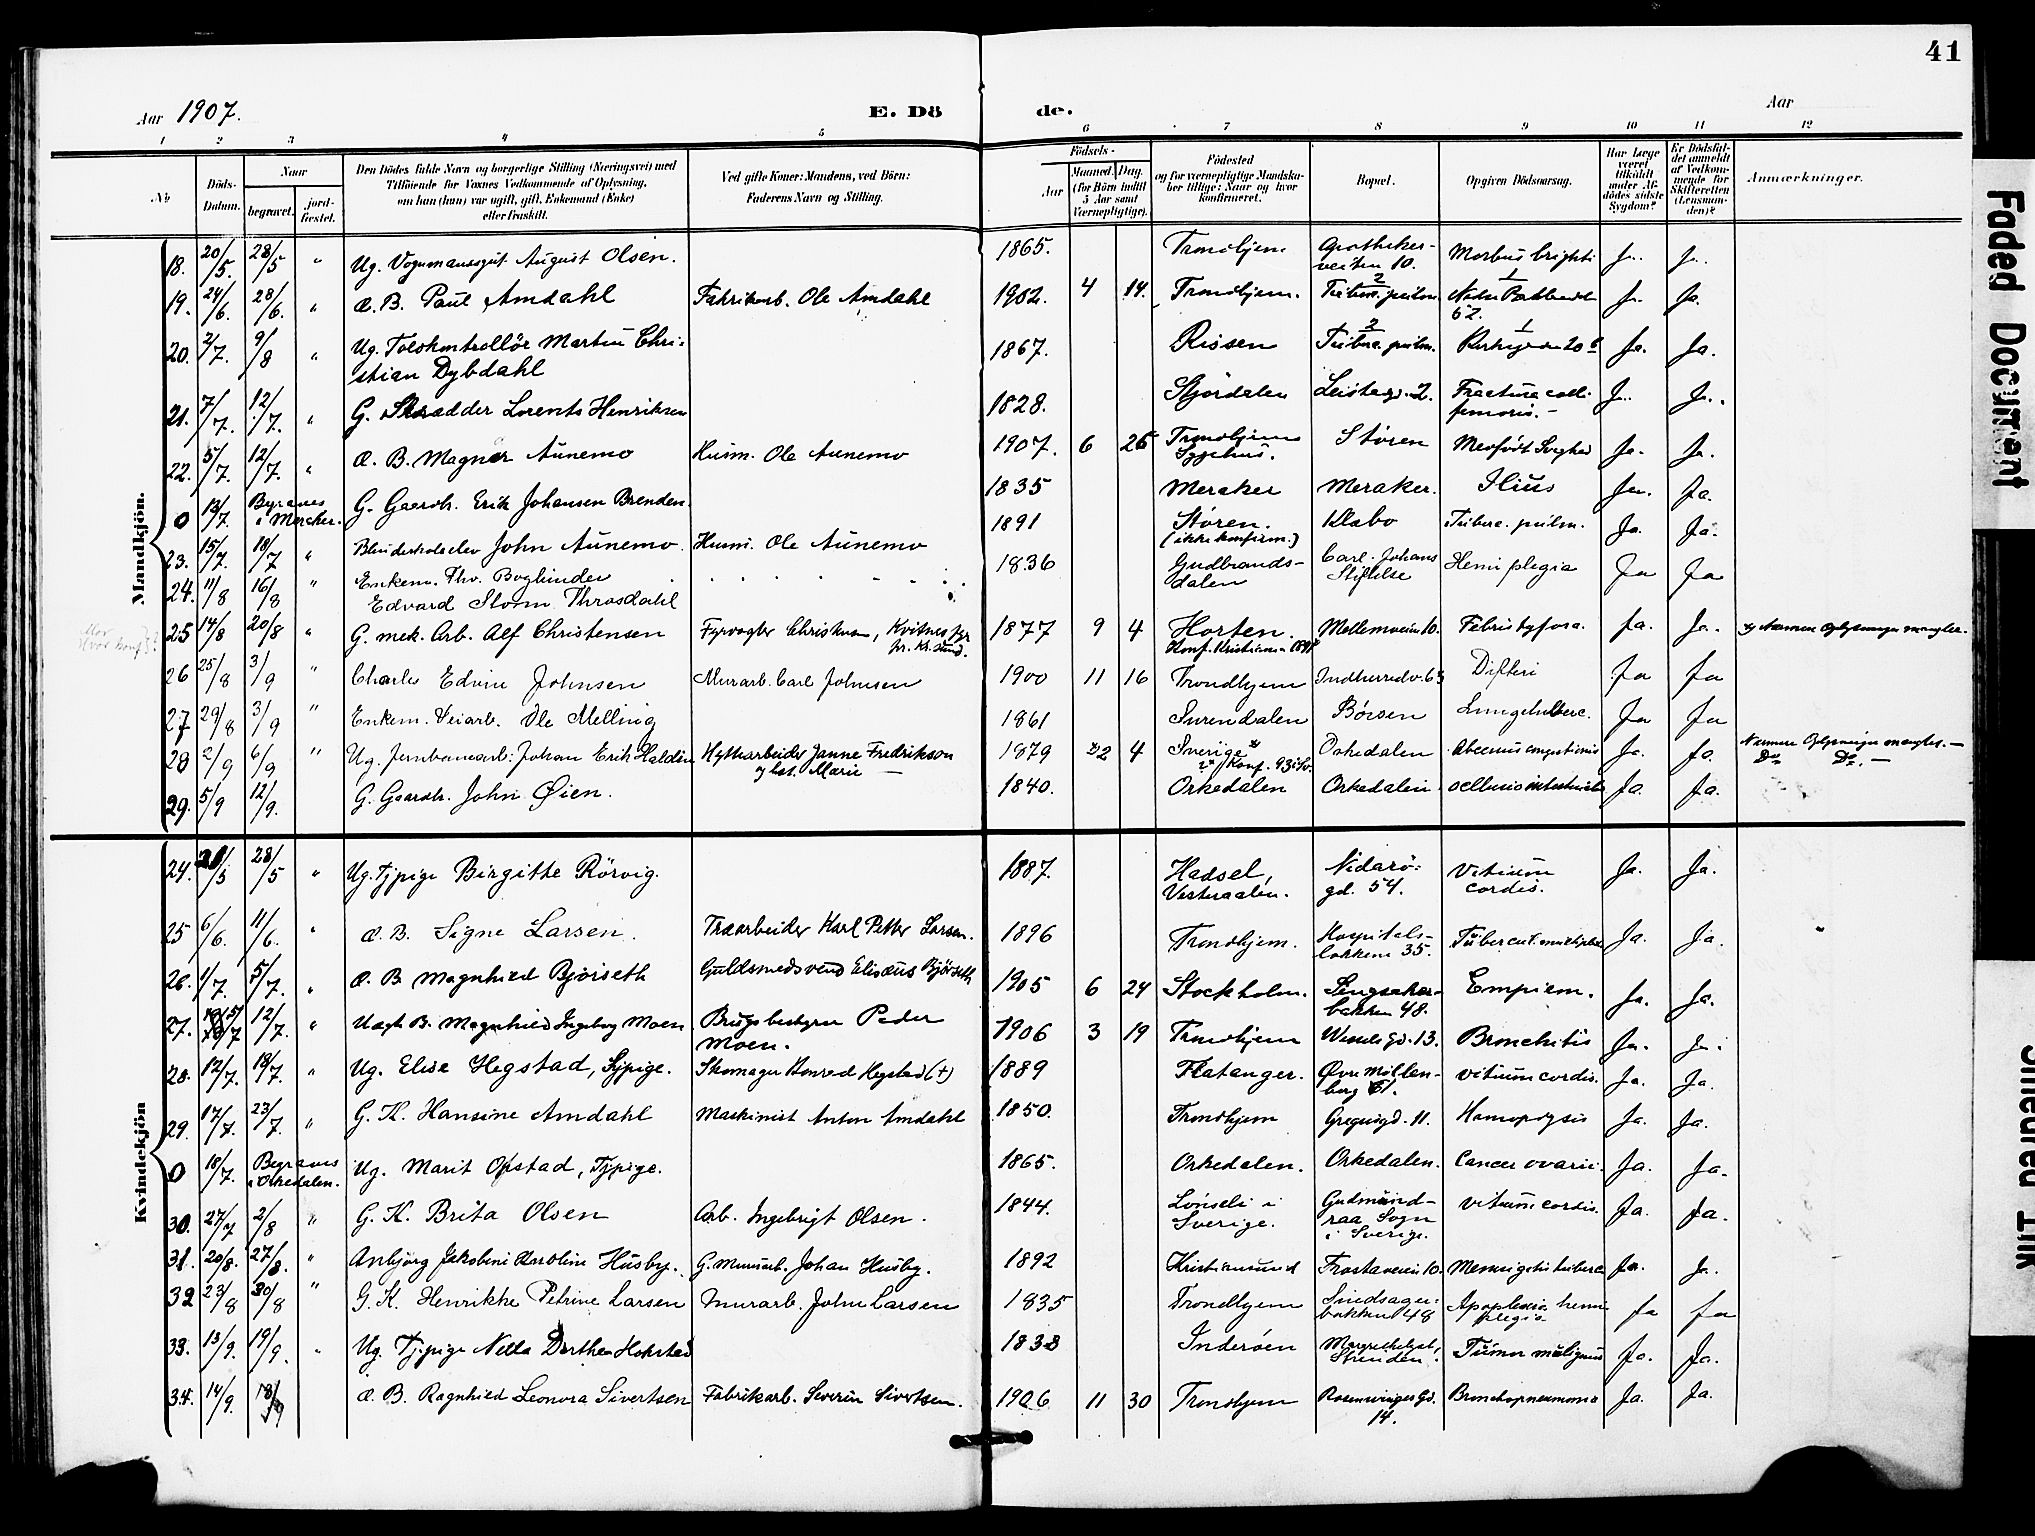 41
Aar 1907.
E. Dö de.
Aar
1 2 3 4 5 6 7 8 9 10 11 12
No
Döds-Datum.
Naar
begravet.
jord-fæstet.
Den Dödes fulde Navn og borgerlige Stilling (Næringsvei) med
Tilföiende for Voxnes Vedkommende af Oplysning,
om han (hun) var ugift, gift, Enkemand (Enke)
eller fraskilt.
Ved gifte Koner: Mandens, ved Börn:
Faderens Navn og Stilling.
Födsels-
Aar
Maaned. Dag.
(for Börn indtil
5 Aar samt
Værnepligtige).
Födested
og for værnepligtige Mandska-
ber tillige: Naar og hvor
konfirmeret.
Bopæl.
Opgiven Dödsaarsag.
Har Læge
været
tilkaldt
under Af-
dödes sidste
Sygdom?
Er Dödsfal-
det anmeldt
af Vedkom-
mende for
Skifteretten
(Lensman-
den)?
Anmærkninger.
Mandkjön.
18. 20/5. 28/5 " Ug. Vognmandsgut August Olsen. 1865. Trondhjem Apotheker-
veiten 10. Morbus brighti Ja. Ja.
19. 24/6. 28/6. " Æ. B. Paul Amdahl Fabrikarb. Ole Amdahl 1902. 4 14. Trondhjem. 2 Tuberc. pulm. 1 Nedre Bakklandet
62. Ja. Ja.
20. 2/7. 9/8 " Ug. Tolskontrollör Martin Chri-
stian Dybdahl 1867. Rissen 2 Tuberc. pulm. 1 Kirkegaden 20 b Ja. Ja.
21. 7/7. 12/7. " G. Skrædder Lorents Henriksen 1828. Stjördalen Leistegd. 2. Fractura colli
femoris. - Ja. Ja.
22. 5/7. 12/7. " Æ. B. Magner Aunemo Husm. Ole Aunemo 1907. 6 26 Trondhjems
Sygehus. Stören Medfödt Svaghed Ja. Ja.
0 13/7. Begraves
i Meraker. G. Gaardb. Erik Johansen Brenden. 1835 Meraker Meraker. Ilius Ja. Ja.
23. 15/7. 18/7 " Blindeskoleelev John Aunemo. Husm. Ole Aunemo 1891 Stören.
(ikke konfirm.) Klæbo Tuberc. pulm. Ja. Ja.
24. 11/8 16/8 " Enkem. Fhv. Bogbinder
Edvard Storm Thrasdahl 1836 Gudbrands-
dalen Carl Johans
Stiftelse Hemiplegia Ja Ja
25 14/8 20/8 " G. mek. Arb. Alf Christensen Fyrvogter Christensen, Kvitnes fyr
pr. Kr.sund. 1877 9 4 Horten.
Konf. Kristiania 1891 Mellemveien 10. Febris tyfora. Ja. Ja. Nærmere Oplysninger mangler.
26 25/8 3/9 " Charles Edvin Johnsen Murarb. Carl Johnsen 1900 11 16 Trondhjem Indherredv. 63 Difteri Ja Ja
27 29/8 3/9 " Enkem. Veiarb. Ole Melling 1861 Surendalen Börsen Lungetuberc. Ja Ja
28 2/9 6/9 " Ug. Jernbanearb. Johan Erik Haldin Hyttearbeider Janne Fredrikson
og hst. Marie - 1879 22 4 Sverige
Konf. 93 i Sv. Orkedalen Abcessus congestionis Ja. Ja. Nærmere Oplysninger mangler. -
Do Do. -
29. 5/9 12/9. G. Gaardb. John Øien. 1840. Orkedalen Orkedalen occlusio intestinal. Ja. Ja.
Kvindekjön
24. 21/5 28/5 " Ug. Tjpige Birgitte Rörvig. 1887. Hadsel,
Vesteraalen. Nidarö-
gd. 54. Vitium
cordis. Ja. Ja.
25 6/6. 11/6. " Æ. B. Signe Larsen. Træarbeider Karl Petter Larsen. 1896 Trondhjem. Hospitals-
lökken 35. Tubercul. multiplex Ja. Ja.
26. 1/7. 5/7. " Æ. B. Magnhild Bjørseth Guldsmedsvend Elisæus Bjørseth 1905 6 24 Stockholm. Singsaker-
bakken 48. Empiem. Ja. Ja.
27. 12/7. " Uægte B. Magnhild Ingeborg Moen Brugsbestyrer Peder
Moen. 1906 3 19 Trondhjem Wesselsgd. 13. Bronchitis Ja. Ja.
28. 12/7. 18/7. " Ug. Elise Hegstad, Sypige. Skomager Konrad Hegstad (+) 1889 Flatanger. Øvre Möllen-
berg 61. vitium cordis. Ja. Ja.
29. 17/7. 23/7. " G. K. Hansine Amdahl Maskinist Anton Amdahl 1850. Trondhjem Gregusgd. 11. Hæmoptysis Ja. Ja.
0 18/7. Begraves
i Orkedalen. Ug. Marit Opstad, Tjpige. 1865. Orkedalen. Orkedalen. Cancer ovarii. Ja. Ja.
30. 27/7 2/8 " G. K. Brita Olsen Arb. Ingebrigt Olsen. 1844. Lönseli i
Sverige. Gudmund-
raa Sogn
i Sverige. vitium cordis. Ja. Ja.
31. 20/8. 27/8. " Anbjörg Jakobine Karoline Husby. G. Murarb. Johan Husby. 1892 Kristiansund Frostaveien 10. Meningitis tuberc. Ja. Ja.
32 23/8 30/8 " G. K. Henrikke Petrine Larsen Murarb. John Larsen 1835 Trondhjem Singsager-
bakken 48 Apoplexia hemi-
plegia Ja Ja
33. 13/9. 19/9. " Ug. Tjpige Netta Dorthea Hokstad 1838 Inderöen Margrethelyst,
Strinden. Tumor malignus Ja. Ja.
34. 14/9. 18/9 Æ. B. Ragnhild Leonora Sivertsen Fabrikarb. Severin Sivertsen. 1906 11 30 Trondhjem Rosenvingesgd.
14. Bronchopneumonia Ja. Ja.
Faded Document
Smeared Ink